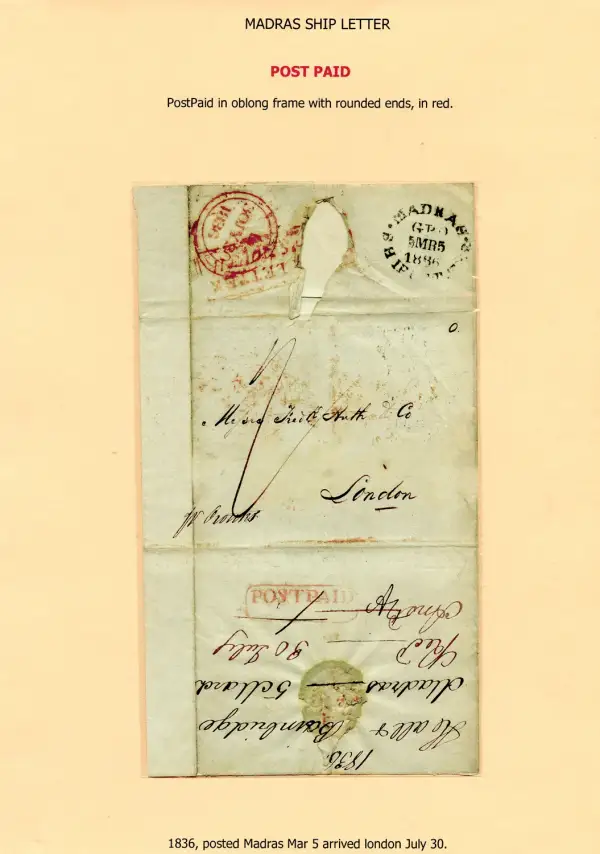 MADRAS SHIP LETTER
POST PAID
PostPaid in oblong frame with rounded ends, in red.
MADRAS
GPO
5MR5
1836
SHIP
LETTER
O.
Messrs Fredk Huth & Co
London
POSTPAID
1836
Bainbridge
Madras 5 March
Recd 30 July
1836, posted Madras Mar 5 arrived london July 30.